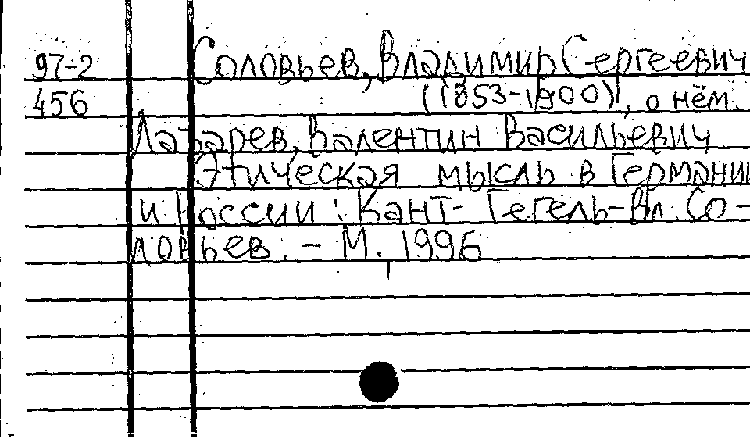 97-2 Соловьев, Владимир Сергеевич
456 (1853-1900), о нём.
Лазарев, Валентин Васильевич
Этическая мысль в Германии
и России: Кант-Гегель-Вл. Со-
ловьев. - М. 1996